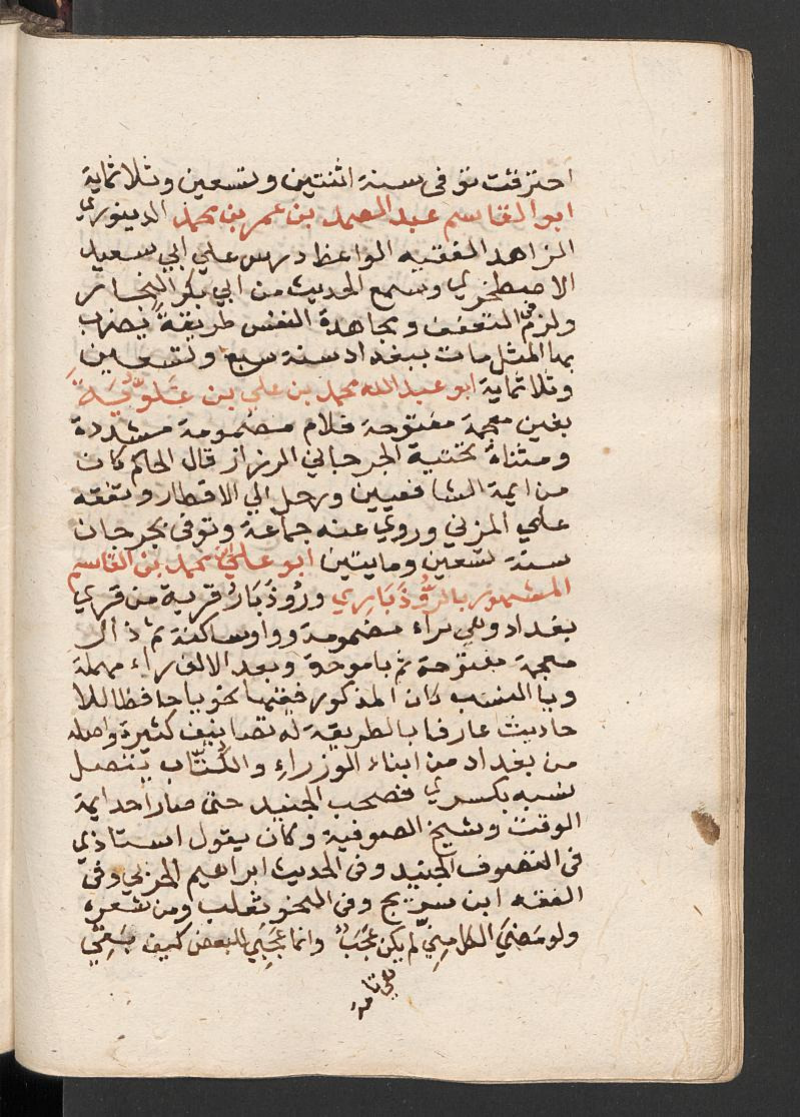 احترقت توفى سنة اثنتين وتسعين وثلاثماية
ابو القاسم عبد الصمد بن عمر بن محمد الدينوري
الزاهد الفقيه الواعظ درس علي ابي سعيد
الاصطخري وسمع الحديث من ابي بكر النجار
ولزم في التعفف ومجاهدة النفس طريقةً يضرب
بها المثل مات ببغداد سنة سبع وتسعين
وثلاثماية ابو عبد الله محمد بن علي بن عَلّويَةَ
بغين معجمة مفتوحة فلام مضمومة مشددة
ومثناة تحتية الجرجاني الرزاز قال الحاكم كان
من ايمة الشافعيين ورحل الي الاقطار وتفقه
علي المزني وروي عنه جماعة وتوفى بجرجان
سنة تسعين ومايتين ابو علي محمد بن القاسم
المشهور بالرُّوذَبَارِي ورُوذَبَارُ قرية من قري
بغداد وهي براء مضمومة وواو ساكنة ثم ذال
معجمة مفتوحة ثم باموحدة وبعد الالف راء مهملة
ويا النسب كان المذكور فقيها نحويا حافظا للا
حاديث عارفا بالطريقة له تصانيف كثيرة واصله
من بغداد من ابناء الوزراءِ والكُتّاب يتصل
نسبه بكسري فصحب الجنيد حتى صار احد ايمة
الوقت وشيخ الصوفية وكان يقول استاذي
في التصوف الجنيد وفى الحديث ابراهيم الحربي وفى
الفقه ابن سريج وفى النحو ثعلب ومن شعره
ولو مَضيَ الكل مِنِيّ لم يكن عَجَبٌ وانما عَجَبِي للبعض كيف بَقِيْ